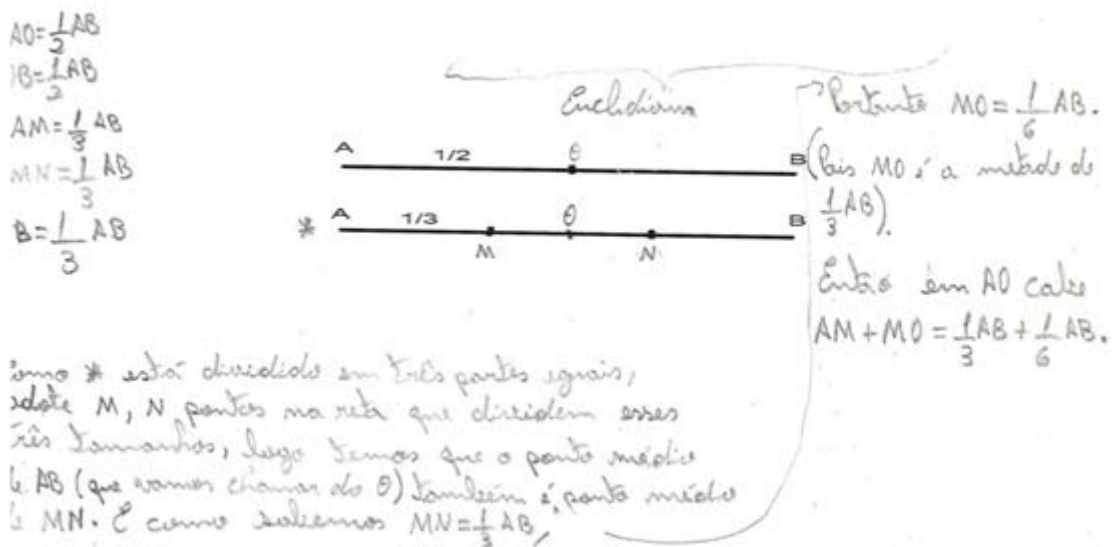 AO = 1/2 AB
OB = 1/2 AB
AM = 1/3 AB
MN = 1/3 AB
B = 1/3 AB
Euclidiana
A 1/2 θ B
* A 1/3 θ B
M N
Como * está dividido em três partes iguais,
adote M, N pontos na reta que dividem esses
três tamanhos, logo temos que o ponto médio
de AB (que vamos chamar do θ) também é ponto médio
de MN. E como sabemos MN = 1/3 AB,
Portanto MO = 1/6 AB.
(Pois MO é a metade de
1/3 AB).
Então em AO cabe
AM + MO = 1/3 AB + 1/6 AB.